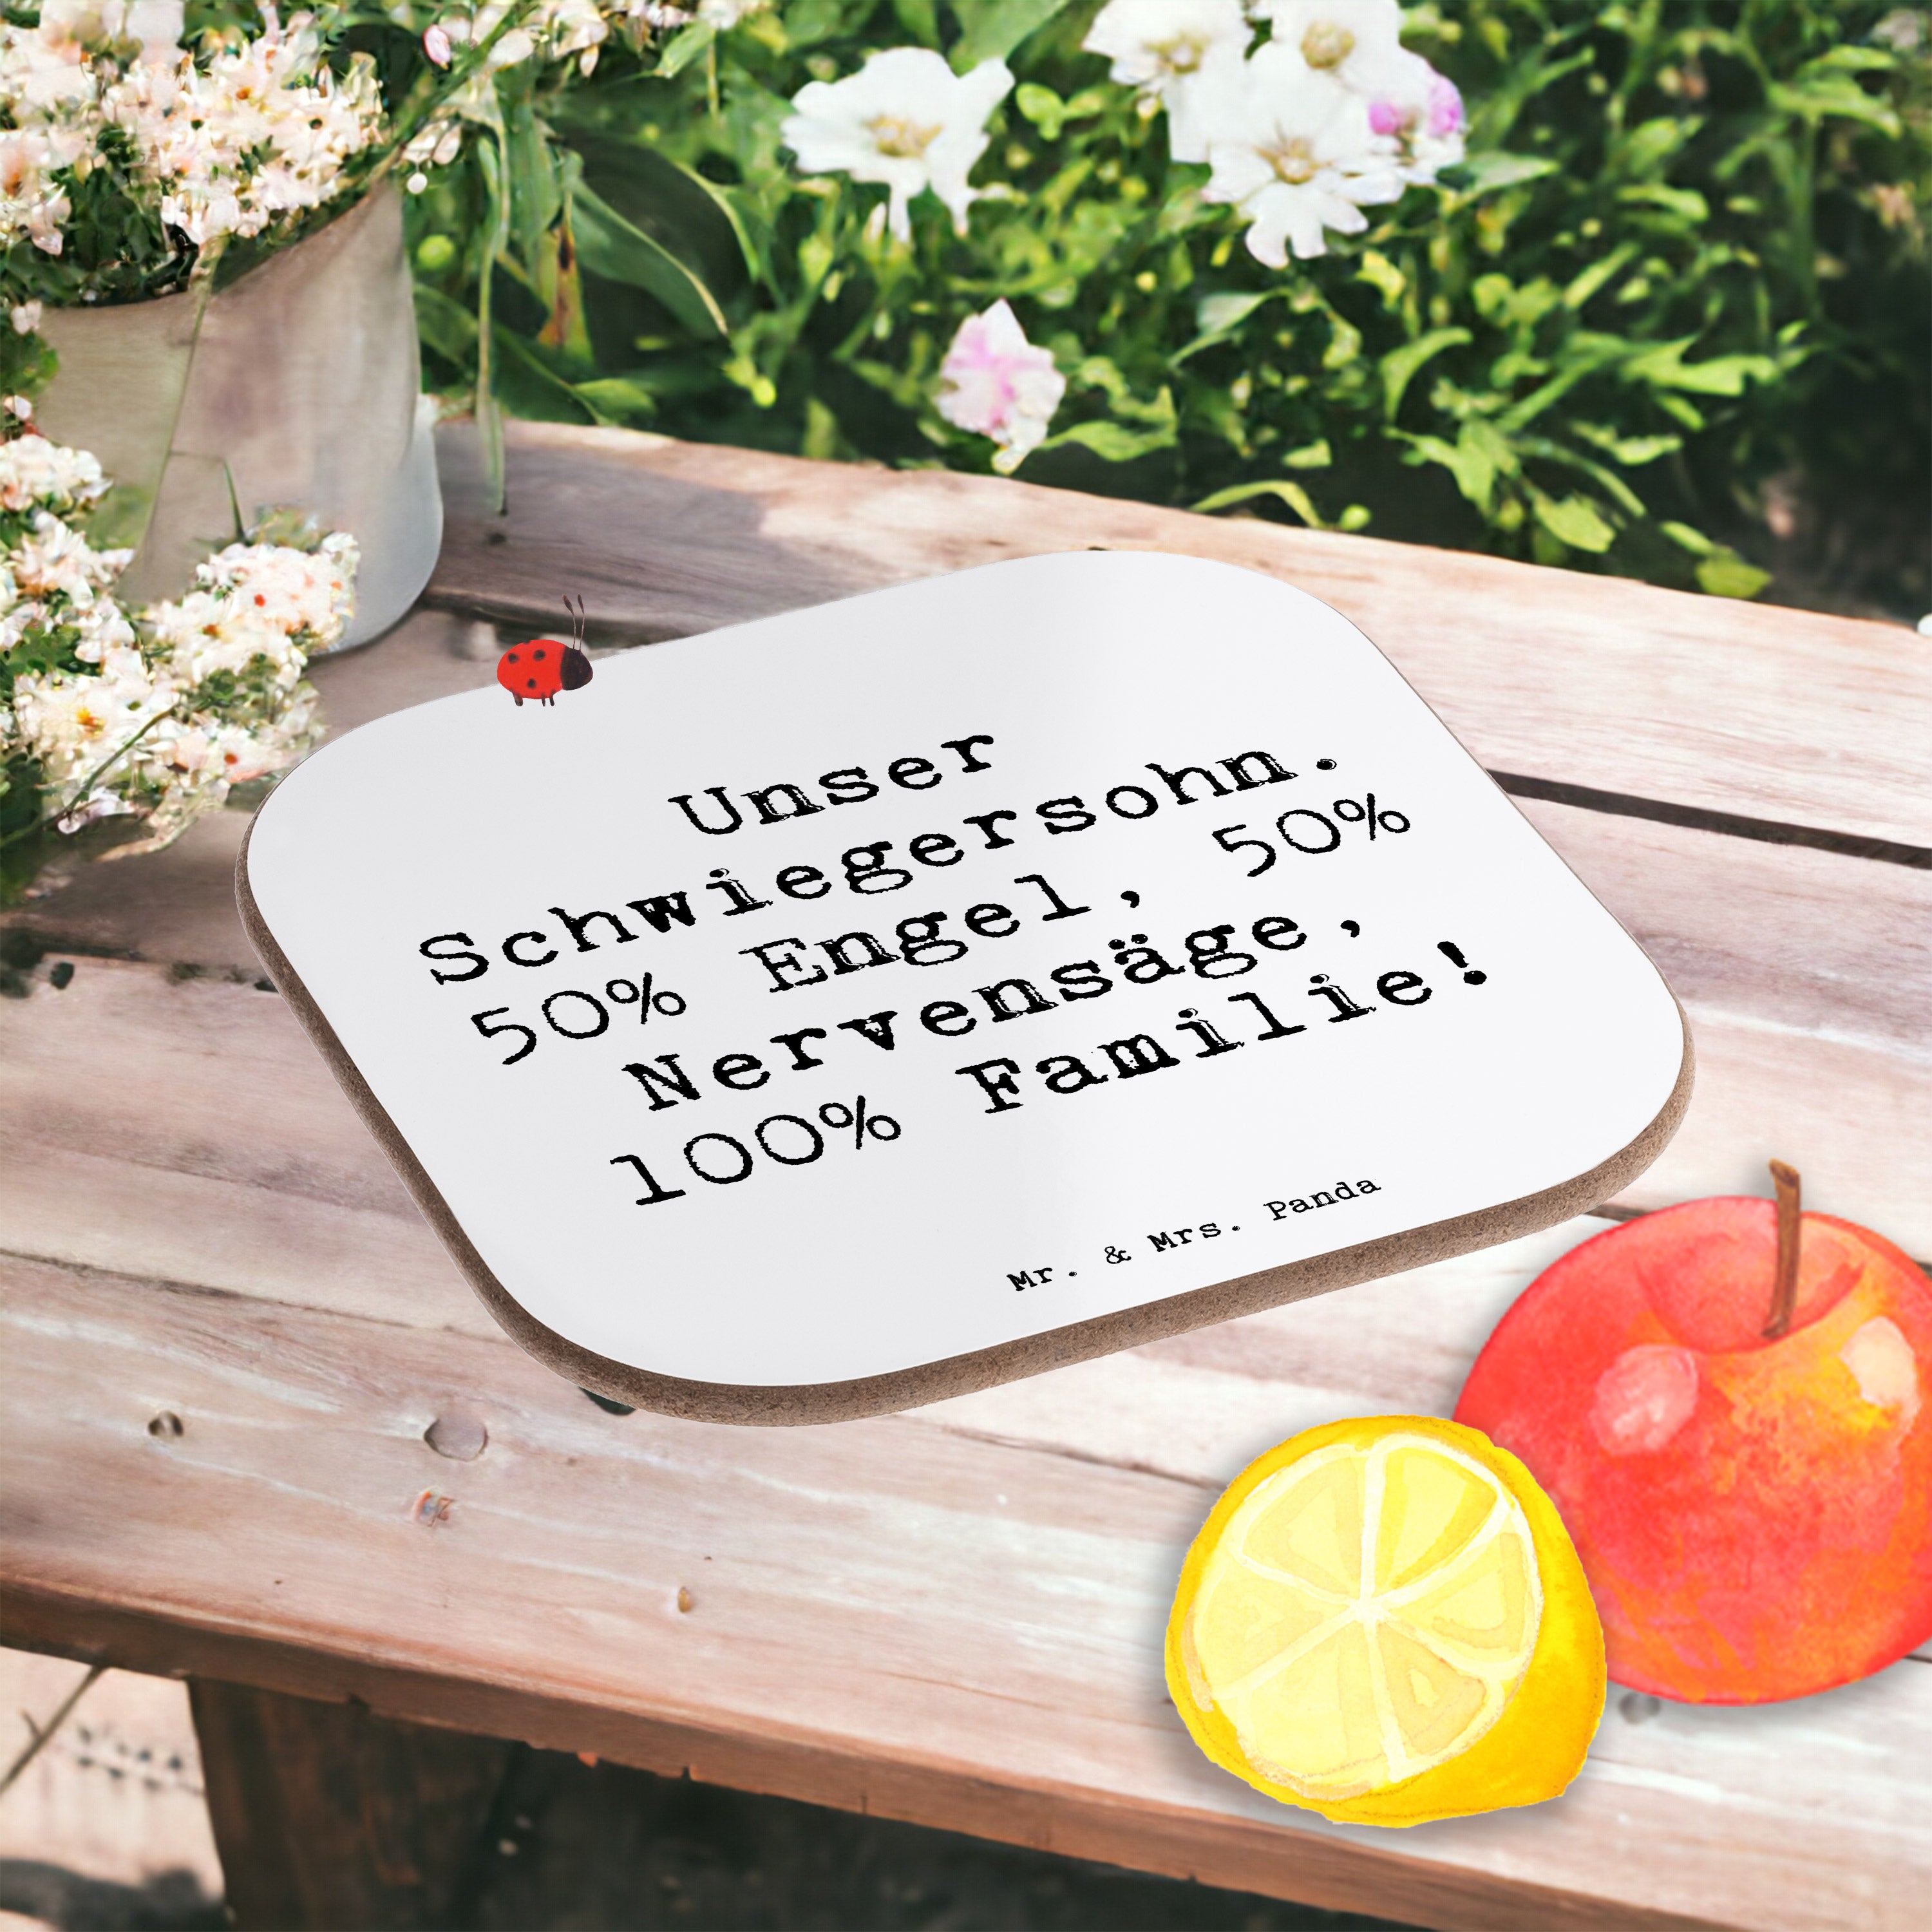 Unser
Schwiegersohn.
50% Engel, 50%
Nervensäge,
100% Familie!
Mr. & Mrs. Panda